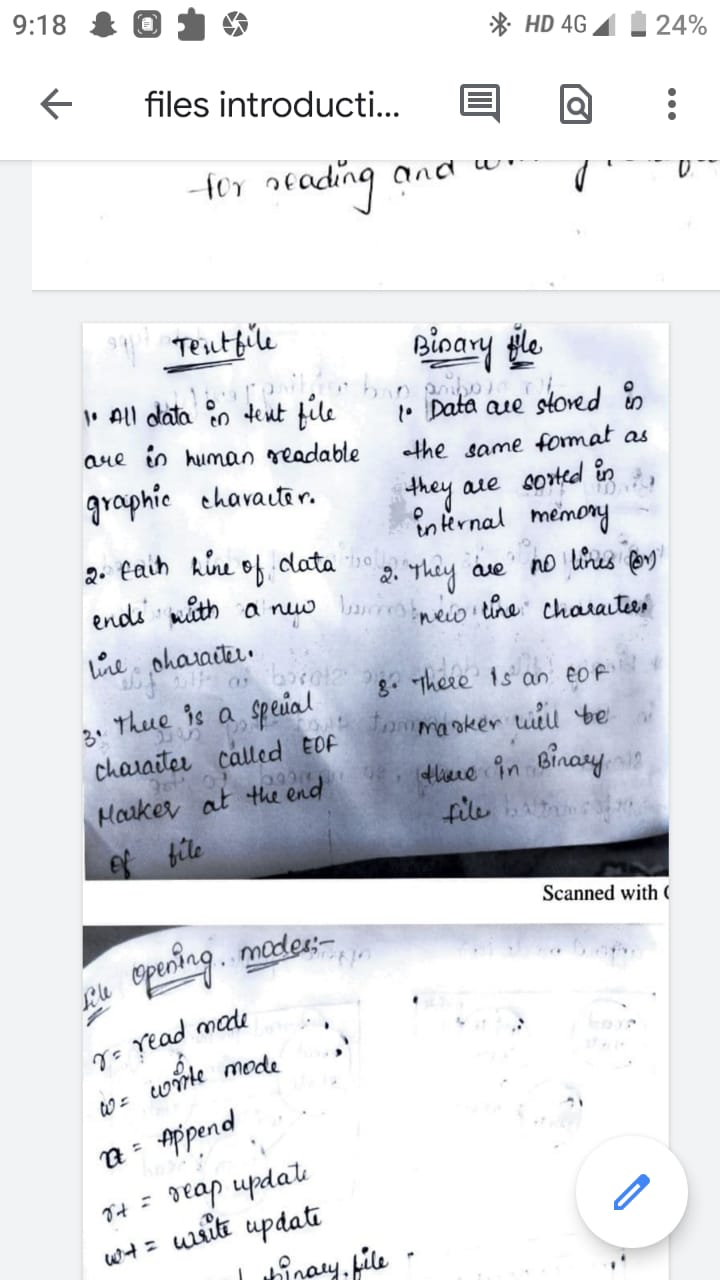 9:18 HD 4G 24%
files introducti...
for reading and
Textfile
1. All data in text file
are in human readable
graphic character.
2. Each line of data
ends with a new
line character.
3. There is a special
character called EOF
Marker at the end
of file
Binary file
1. Data are stored in
the same format as
they are sorted in
internal memory
2. They are no lines (or)
new line character
3. There is an EOF
marker will be
there in Binary
file
Scanned with
File opening modes:-
r = read mode
w = write mode
a = Append
r+ = reap update
w+ = write update
binary file